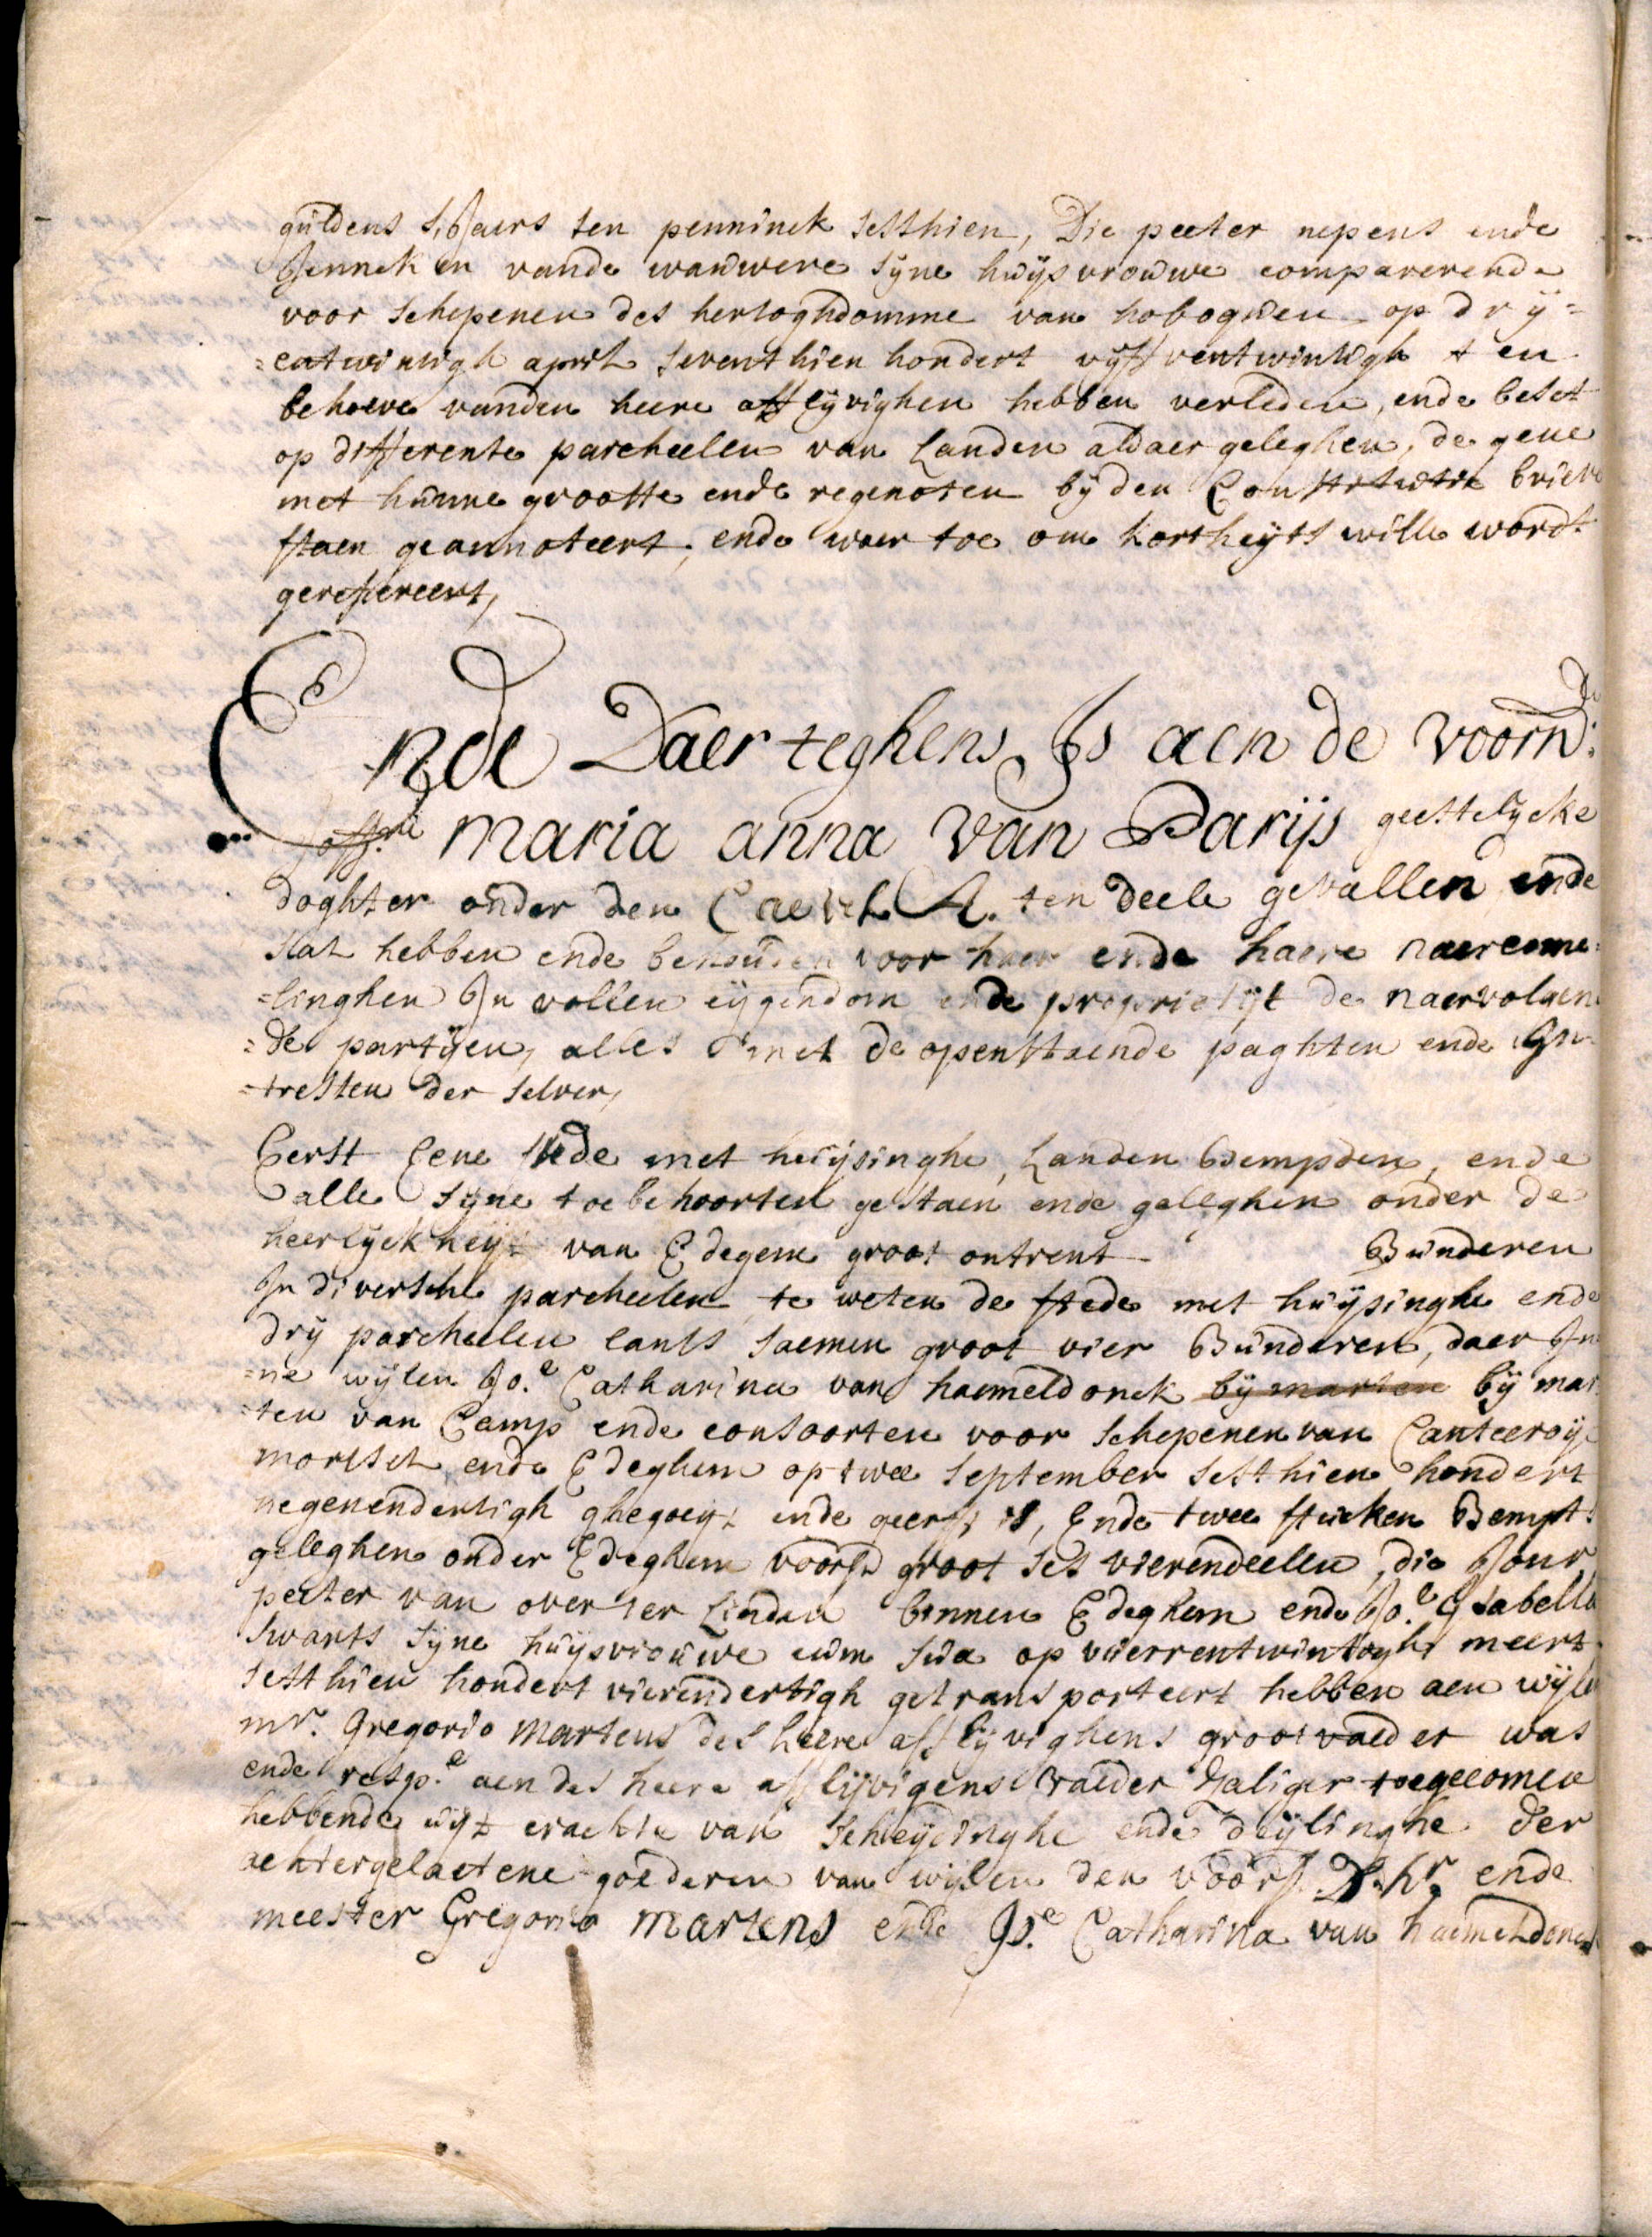 guldens s'jaers den penninck sesthien, Die peeter nepens ende
Jenneken vande wauwere syne huysvrouwe comparerende
voor schepenen des hertoghdomme van hoboquen op dry=
=entwintigh april seventhien hondert vyffventwintigh ten
behoeve vanden heere afflyvighen hebben verleden, ende beset
op differente parcheelen van Landen aldaer geleghen, de gene
met hunne grootte ende regenoten by den Constitutie brieve
staen geannoteert, ende waer toe om kortheyts wille wordt
gerefereert,
Ende Daer teghens Is aen de voornde:
Joffre Maria anna Van Parijs geestelycke
doghter onder den Cavel A. ten deele gevallen ende
sal hebben ende behouden voor haer ende haere naercome=
=linghen In vollen eygendom ende proprieteyt de naervolgen
=de partyen, alles met de openstaende paghten ende In=
=tresten der selver,
Eerst Eene stede met huysinghe, Landen Bempden, ende
alle syne toebehoorten gestaen ende geleghen onder de
heerlyckheyt van Edegem groot ontrent Bunderen
In diversche parcheelen te weten de stede met huysinghe ende
dry parcheelen lants saemen groot vier Bunderen, daer In
=ne wylen Jo.e Catharina van haemeldonck by marten by mar
=ten van Camp ende consoorten voor schepenen van Canteeroy
mortsel ende Edeghem op twee september sesthien hondert
negenendertigh ghegoeyt ende geerft is, Ende twee stucken Bempt
geleghen onder Edeghem voors. groot ses vierendeelen, die Jour
peeter van over ter Linden binnen Edeghem ende Jo.e Isabella
swarts syne huysvrouwe cum sua op vierrentwintigh meert
sesthien hondert vierendertigh getransporteert hebben aen wyle
mr. Gregorio Martens des heere afflyvighens grootvaeder was
ende resp.e aen des heere aflijvigens vaeder Zaliger toegecomen
hebbende uyt crachte van scheydinghe ende deylinghe der
achtergelaetene goederen van wylen den voors. D.hr ende
meester Gregorio Martens ende Jo.e Catharina van haemeldonck